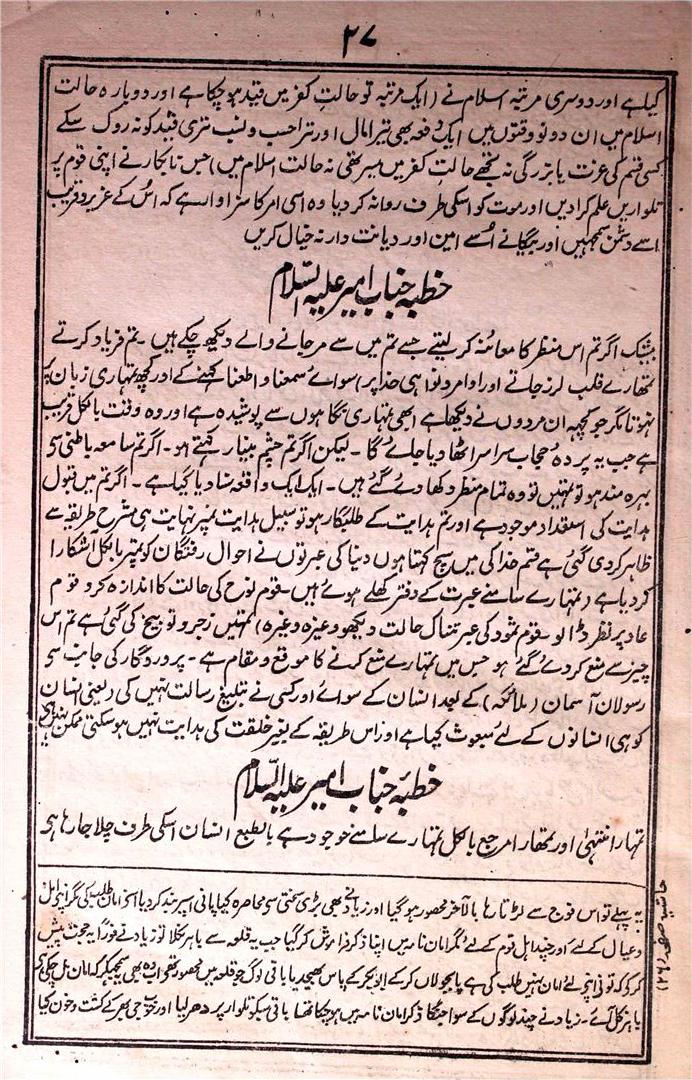 ۲۷
کیا ہے اور دوسری مرتبہ اسلام نے (ایک مرتبہ تو حالتِ کفر میں قید ہو چکا ہے اور دوبارہ حالت
اسلام میں ان دونو وقتوں میں ایک دفعہ بھی تیرا مال اور تیرا حسب و نسب تیری قید کو نہ روک سکے
کسی قسم کی عزت یا بزرگی نہ تجھے حالتِ کفر میں میسر تھی نہ حالت اسلام میں) جس نابکار نے اپنی قوم پر
تلواریں علم کرا دیں اور موت کو اسکی طرف روانہ کر دیا وہ اسی امر کا سزاوار ہے کہ اُس کے عزیز و قریب
اسے دشمن سمجہیں اور بیگانے اُسے امین اور دیانت دار نہ خیال کریں
خطبہ جناب امیر علیہ السلام
بیشک اگر تم اس منظر کا معائنہ کر لیتے جسے تم میں سے مر جانے والے دیکھ چکے ہیں۔ تم فریاد کرتے
تمھارے قلب لرز جاتے اور اوامر و نواہی خدا پر) سوائے سمعنا و اطعنا کہنے کے اور کچھ تمہاری زبان پر
نہوتا مگر جو کچہہ ان مردوں نے دیکھا ہے ابھی تمہاری نگاہوں سے پوشیدہ ہے اور وہ وقت بالکل قریب
ہے جب یہ پردہٗ حجاب سراسر اٹھا دیا جائے گا۔ لیکن اگر تم چشم بینا رکھتے ہو۔ اگر تم سامعہ باطنی سے
بہرہ مند ہو تو تمہیں تو وہ تمام منظر دکھا دئے گئے ہیں۔ ایک ایک واقعہ سنا دیا گیا ہے۔ اگر تم میں قبول
ہدایت کی استعداد موجود ہے اور تم ہدایت کے طلبگار ہو تو سبیل ہدایت تمپر نہایت ہی مشرح طریقہ سے
ظاہر کر دی گئی ہے قسم خدا کی میں سچ کہتا ہوں دنیا کی عبرتوں نے احوال رفتگان کو تمپر بالکل آشکارا
کر دیا ہے (تمہارے سامنے عبرت کے دفتر کھلے ہوئے ہیں۔ قوم نوح کی حالت کا اندازہ کرو قوم
عاد پر نظر ڈالو۔ قوم ثمود کی عبرتناک حالت دیکھو وغیرہ وغیرہ) تمہیں زجر و توبیخ کی گئی ہے تم اس
چیز سے منع کر دئے گئے ہو جس میں تمہارے منع کرنے کا موقع و مقام ہے۔ پروردگار کی جانب سے
رسولان آسمان (ملائکہ) کے بعد انسان کے سوائے اور کسی نے تبلیغ رسالت نہیں کی (یعنی انسان
کو ہی انسانوں کے لئے مبعوث کیا ہے اور اس طریقہ کے بغیر خلقت کی ہدایت نہیں ہو سکتی ممکن نہیں
خطبۂ جناب امیر علیہ السلام
تمہارا منتہیٰ اور تمھارا مرجع بالکل تمہارے سامنے موجود ہے بالطبع انسان اسکی طرف چلا جا رہا ہے
حاشیہ صفحہ (۲۶)
یہ پہلے تو اس فوج سے لڑتا رہا بالآخر محصور ہو گیا اور زیاد نے بھی بڑی سختی سے محاصرہ کیا پانی اسپر بند کر دیا آخر امان طلب کی مگر اپنے اہل
و عیال کے لئے اور چند اہل قوم کے لئے مگر امان نامہ میں اپنا ذکر فراموش کر گیا جب یہ قلعہ سے باہر نکلا تو زیاد نے فوراً یہ حجت پیش
کر کے کہ تو نے اپنے لئے امان نہیں طلب کی ہے پابجولاں کر کے ابوبکر کے پاس بھیجدیا باقی لوگ جو قلعہ میں محصور تھے اب وہ بھی سمجھکر کہ امان مل چکی ہے
باہر نکل آئے۔ زیاد نے چند لوگوں کے سوا جنکا ذکر امان نامہ میں ہو چکا تھا باقی سبکو تلوار پر دھر لیا اور خوب جی بھر کے کشت و خون کیا